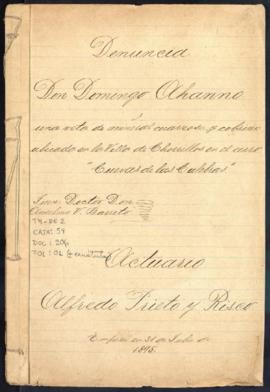 Denuncia
Don Domingo Ohanno
á
una veta de mineral cuarzoso y cobrizo
ubicado en la Villa de Chorrillos en el cerro
"Cuevas de las Culebras"
Juez Doctor Don
V. Barreto
TM-DE 2
CAJA: 54
DOC: 206
FOL: 02
Actuario
Alfredo Prieto y Risco
31 de Julio de
1895.